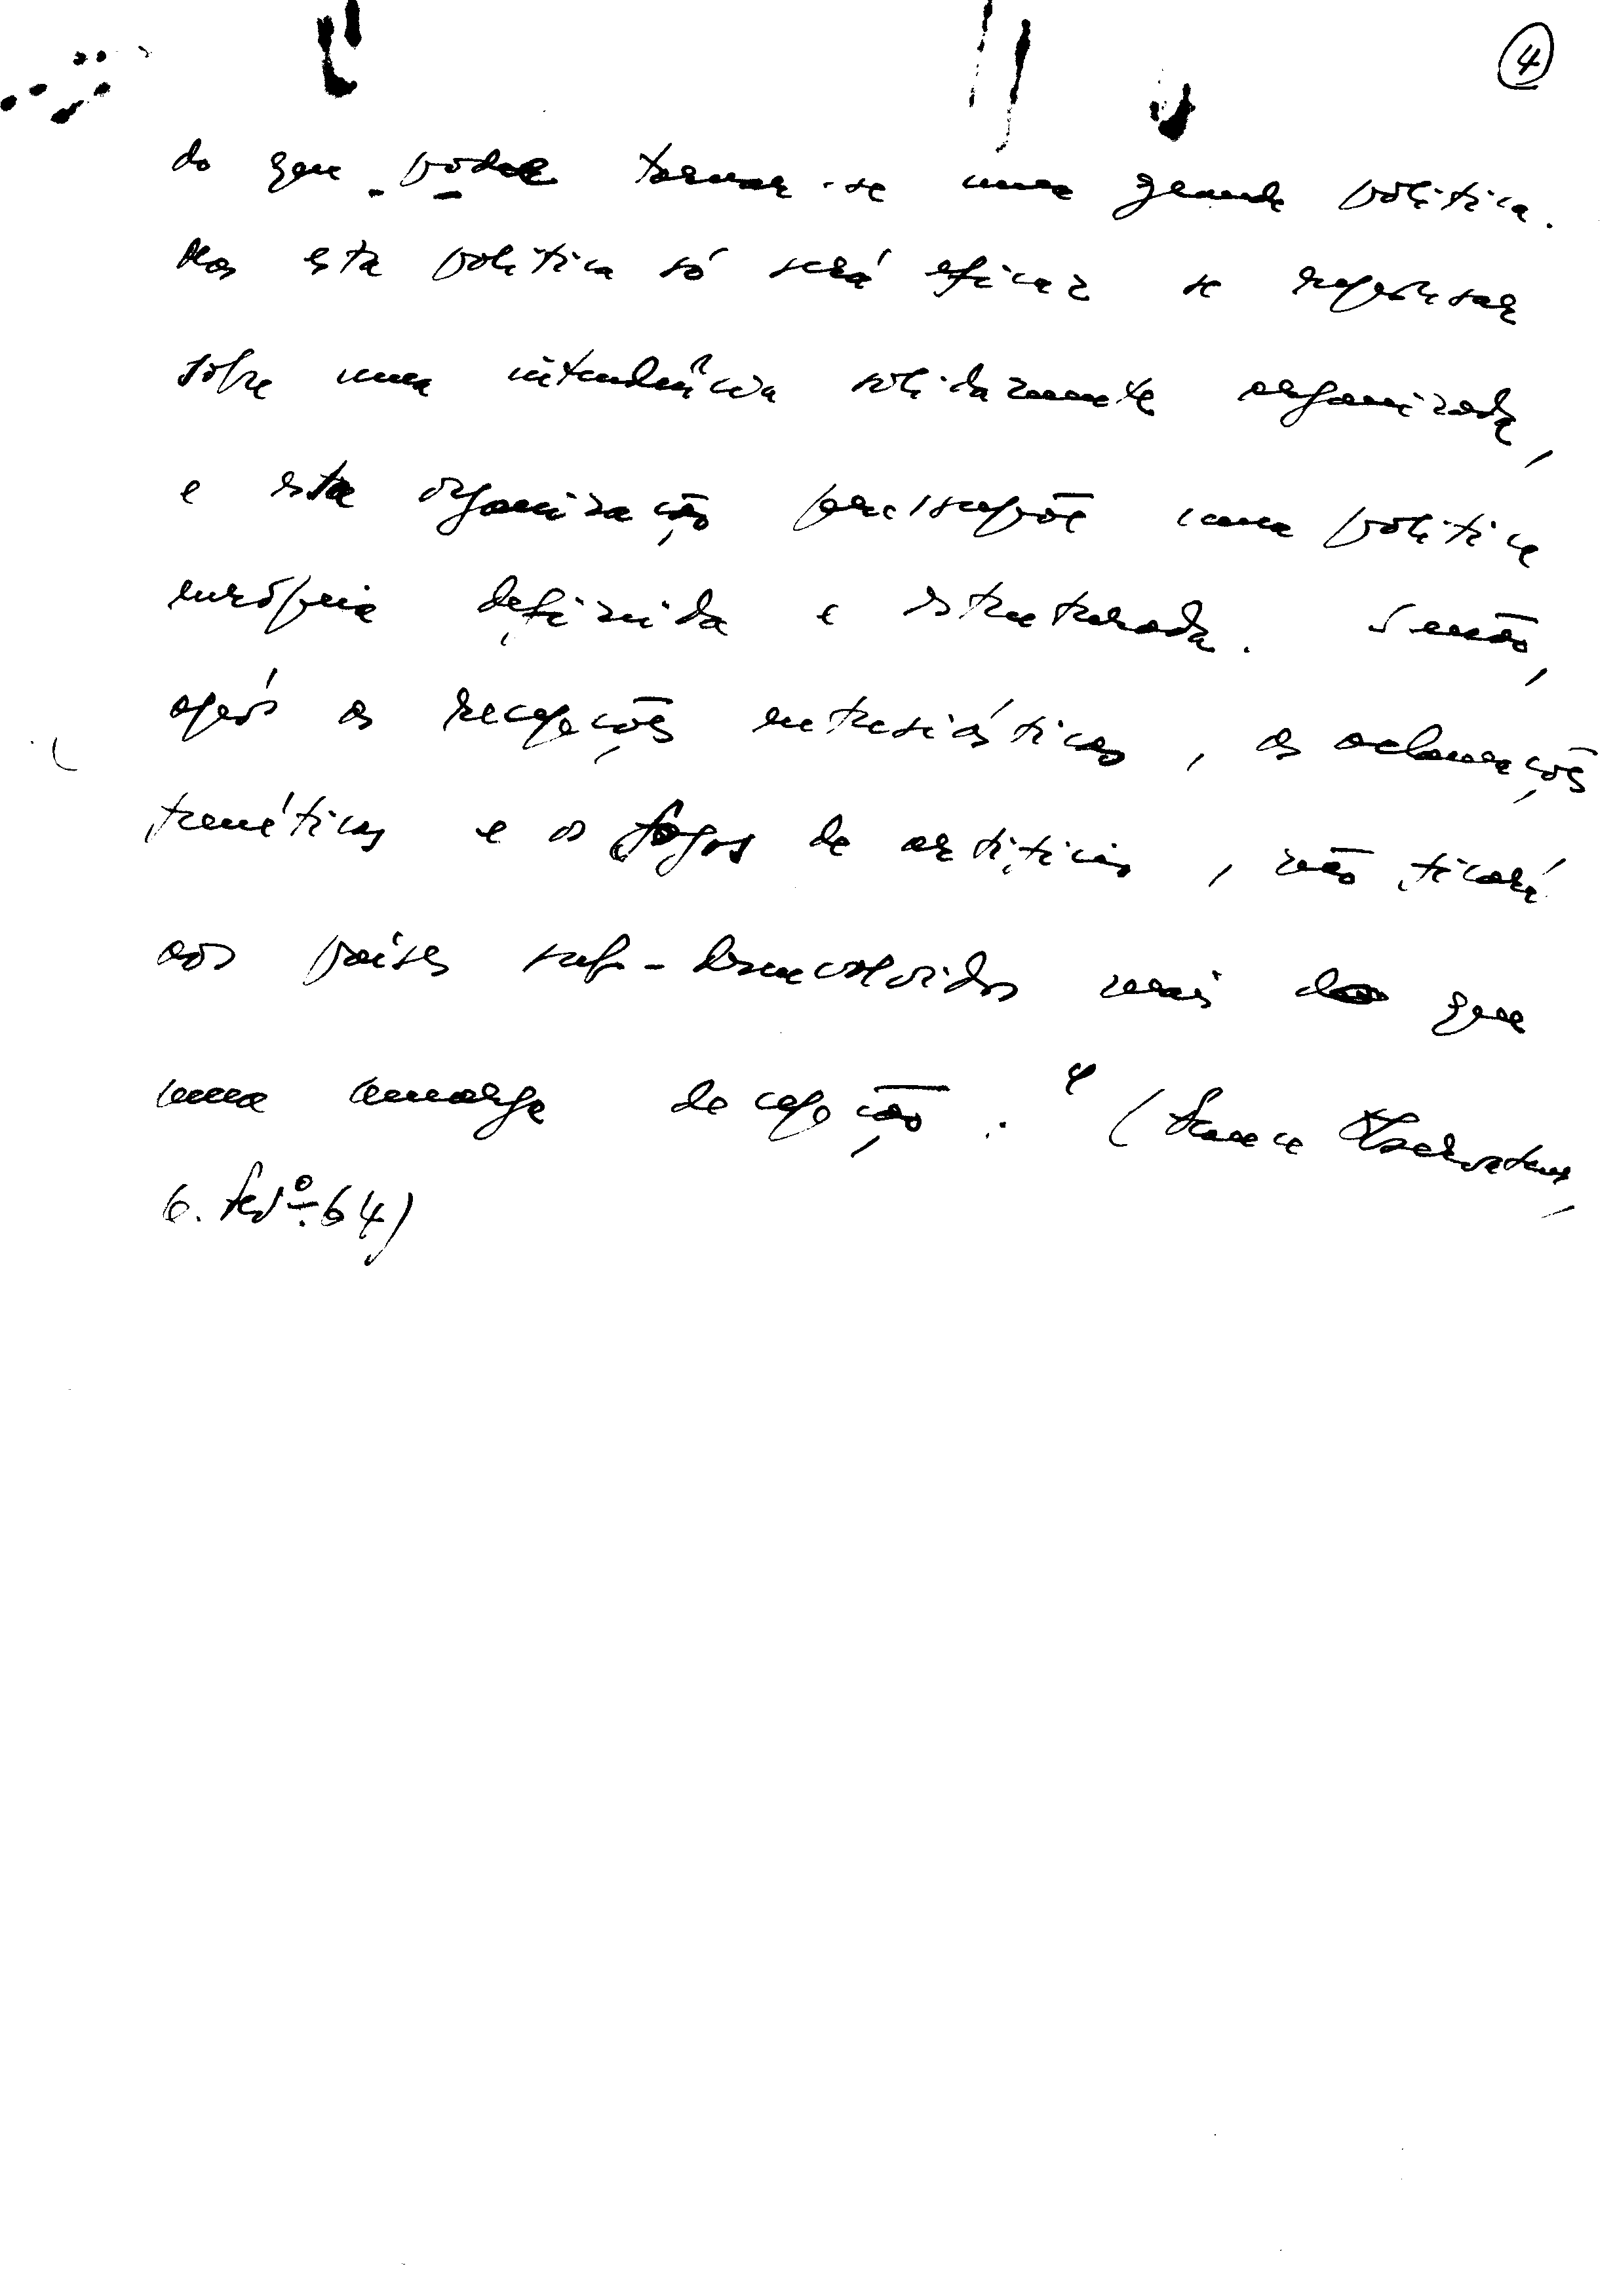 4
do que pode tornar-se uma grande política.
Mas esta política só será eficaz se repousar
sobre uma intendência solidamente organizada,
e esta organização pressupõe uma política
européia definida e estruturada. Senão,
após as recepções entusiásticas, as aclamações
frenéticas e os fogos de artifícios, não ficará
aos países sub-desenvolvidos mais do que
uma amarga decepção." (France Observateur,
6. fevº.64)